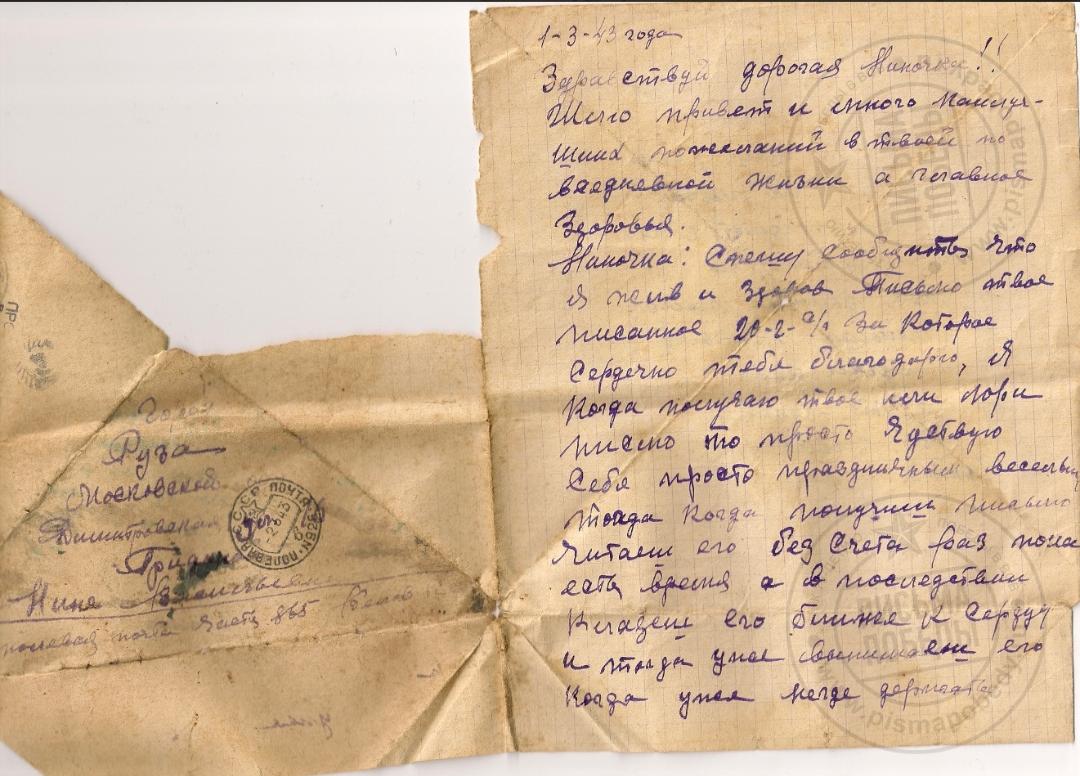 1-3-43 года
Здравствуй дорогая Ниночка!!
Шлю привет и много наилуч-
ших пожеланий в твоей по
вседневной жизни а главное
Здоровья.
Ниночка: Спешу сообщить что
я жив и здоров Письмо твое
писанное 20-2- за которое
Сердечно тебя благодарю, Я
когда получаю твое или
письмо то просто
Себя просто праздничным веселым
тогда когда получиш письмо
читаеш его без счета раз пока
есть время а в последствии
Кладеш его ближе к Сердцу
и тогда уже вынимаеш его
когда уже негде держать
Город
Руза
Московской
Дмитровская
Нине
полевая почта часть 865
СССР ПОЧТА
ПОЛЕВАЯ
ПИСЬМА ПОБЕДЫ
www.pismapobedy
ПИСЬМА ПОБЕДЫ